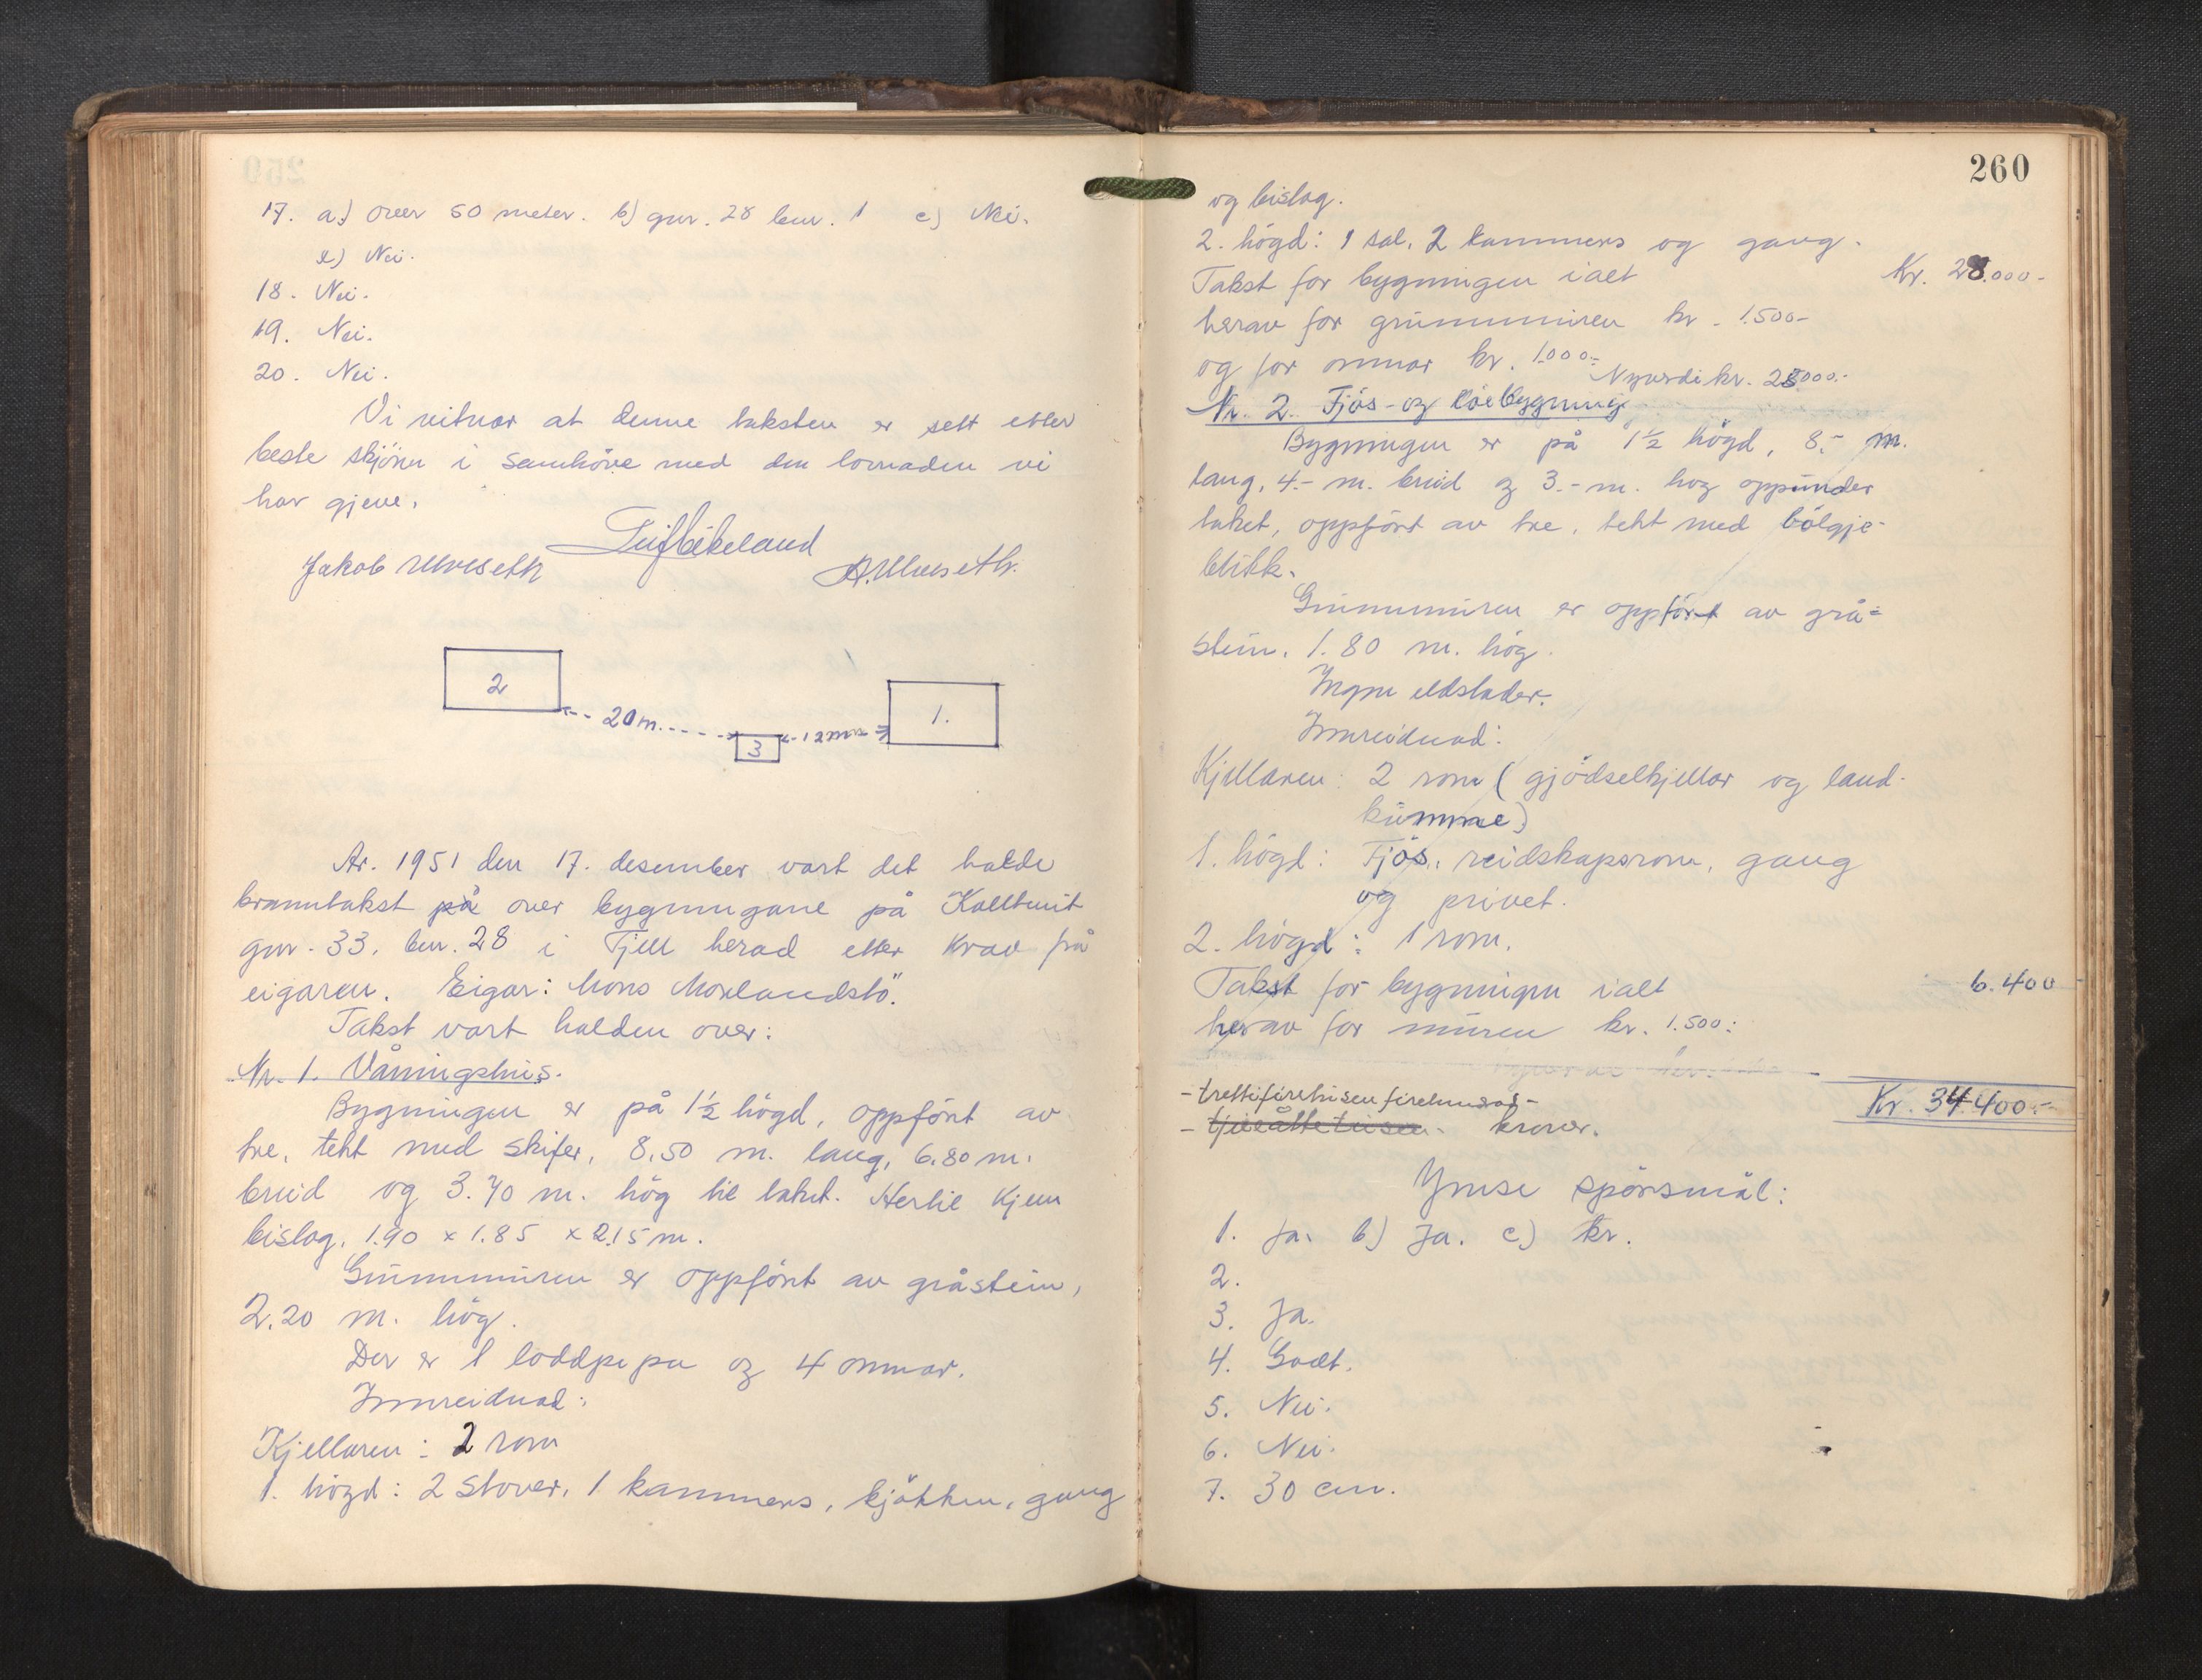 17. a.) over 50 meter. b) gnr. 28 bnr. 1 c) Nei.
d) Nei.
18. Nei.
19. Nei.
20. Nei.
Vi vitnar at denne taksten er sett etter
beste skjönn i samhöve med den lovnaden vi
har gjeve.
Jakob Ulveseth
A. Ulveseth.
2
20 m.
3
12 m
1.
År. 1951 den 17. desember vart det halde
branntakst på over bygningane på Kaltveit
gnr. 33. bnr. 28 i Fjell herad etter krav frå
eigaren. Eigar: Mons Morlandstö.
Takst vart halden over:
Nr. 1. Våningshus.
Bygningen er på 1½ högd, oppfört av
tre, tekt med skifer, 8.50 m. lang, 6.80 m.
breid og 3.70 m. hög til taket. Hertil kjem
bislag, 1.90 x 1.85 x 2.15 m.
Grunnmuren er oppfört av gråstein,
2.20 m. hög.
Der er 1 loddpipa og 4 omnar.
Innreidnad:
Kjellaren: 2 rom
1. högd: 2 stover, 1 kammers, kjökken, gang
260
og bislag.
2. högd: 1 sal, 2 kammers og gang.
Takst for bygningen ialt Kr. 28.000-
herav for grunnmuren kr. 1.500-
og for omnar kr. 1.000.-
Nyverdi kr. 28000.-
Nr. 2. Fjös- og löebygning
Bygningen er på 1½ högd, 8.- m.
lang, 4.- m. breid og 3.- m. hog oppunder
taket, oppfört av tre, tekt med bölgje-
blikk.
Grunnmuren er oppfört av grå=
stein, 1.80 m. hög.
Ingen eldstader.
Innreidnad:
Kjellaren: 2 rom (gjödselkjellar og land-
kumme)
1. högd: Fjös, reidskapsrom, gang
og privet.
2. högd: 1 rom.
Takst for bygningen ialt 6.400
herav for muren kr. 1.500:
-trettifiretusenfirehundre-
Kr. 34.400.-
- tjueåttetusen - kroner.
Ymse spörsmål:
1. Ja. b) Ja. c) kr.
2.
3. Ja.
4. Godt.
5. Nei.
6. Nei.
7. 30 cm.